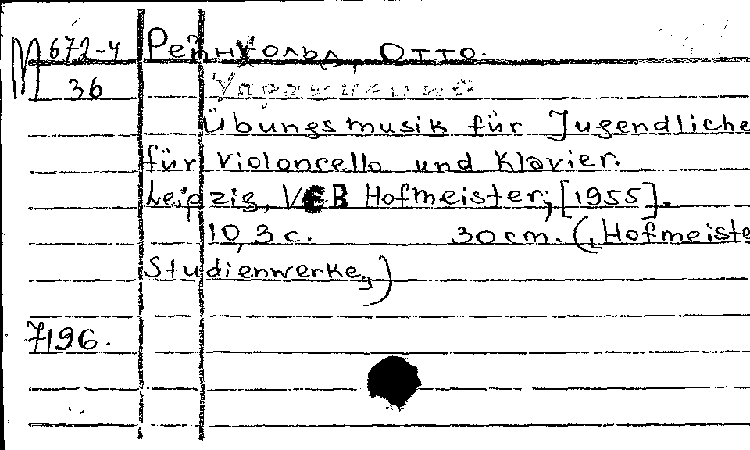 М 672-4 Рейнхольд, Отто.
36 Упражнения
Übungsmusik für Jugendliche
für Violoncello und Klavier.
Leipzig, VEB Hofmeister, [1955].
10, 3 c. 30 cm. („Hofmeiste
Studienwerke„)
7196.